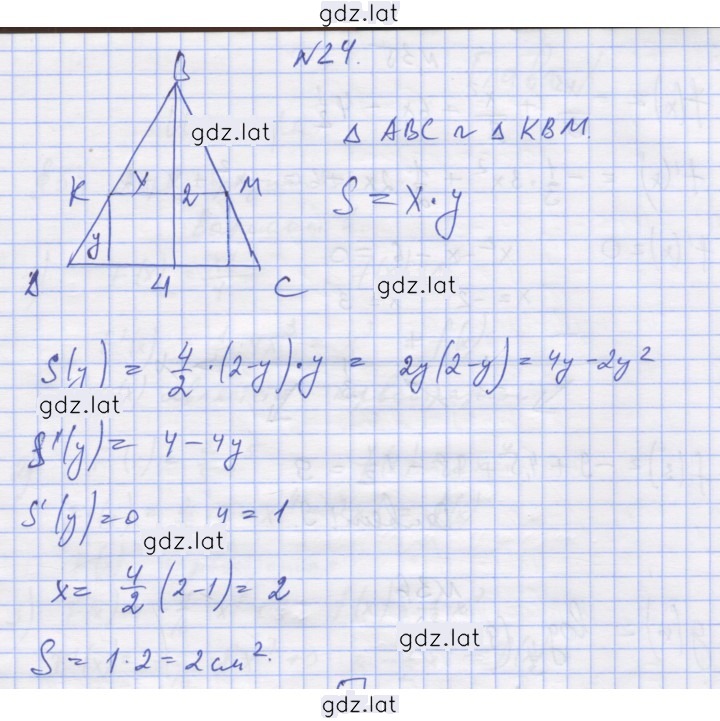 gdz.lat
№24.
B
gdz.lat
Δ ABC ~ Δ KBM.
K x 2 M
S = x · y
y
A 4 C
gdz.lat
S(y) = 4/2 · (2-y) · y = 2y(2-y) = 4y - 2y²
gdz.lat
S'(y) = 4 - 4y
S'(y) = 0 y = 1
gdz.lat
x = 4/2 (2-1) = 2
gdz.lat
S = 1 · 2 = 2 см².
gdz.lat